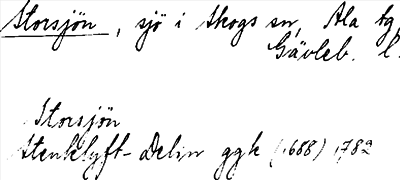 Storsjön, sjö i Skogs sn, Ala tg,
Gävleb. l.
Storsjön
Stenklyft-Delin ggk (1688) 1782